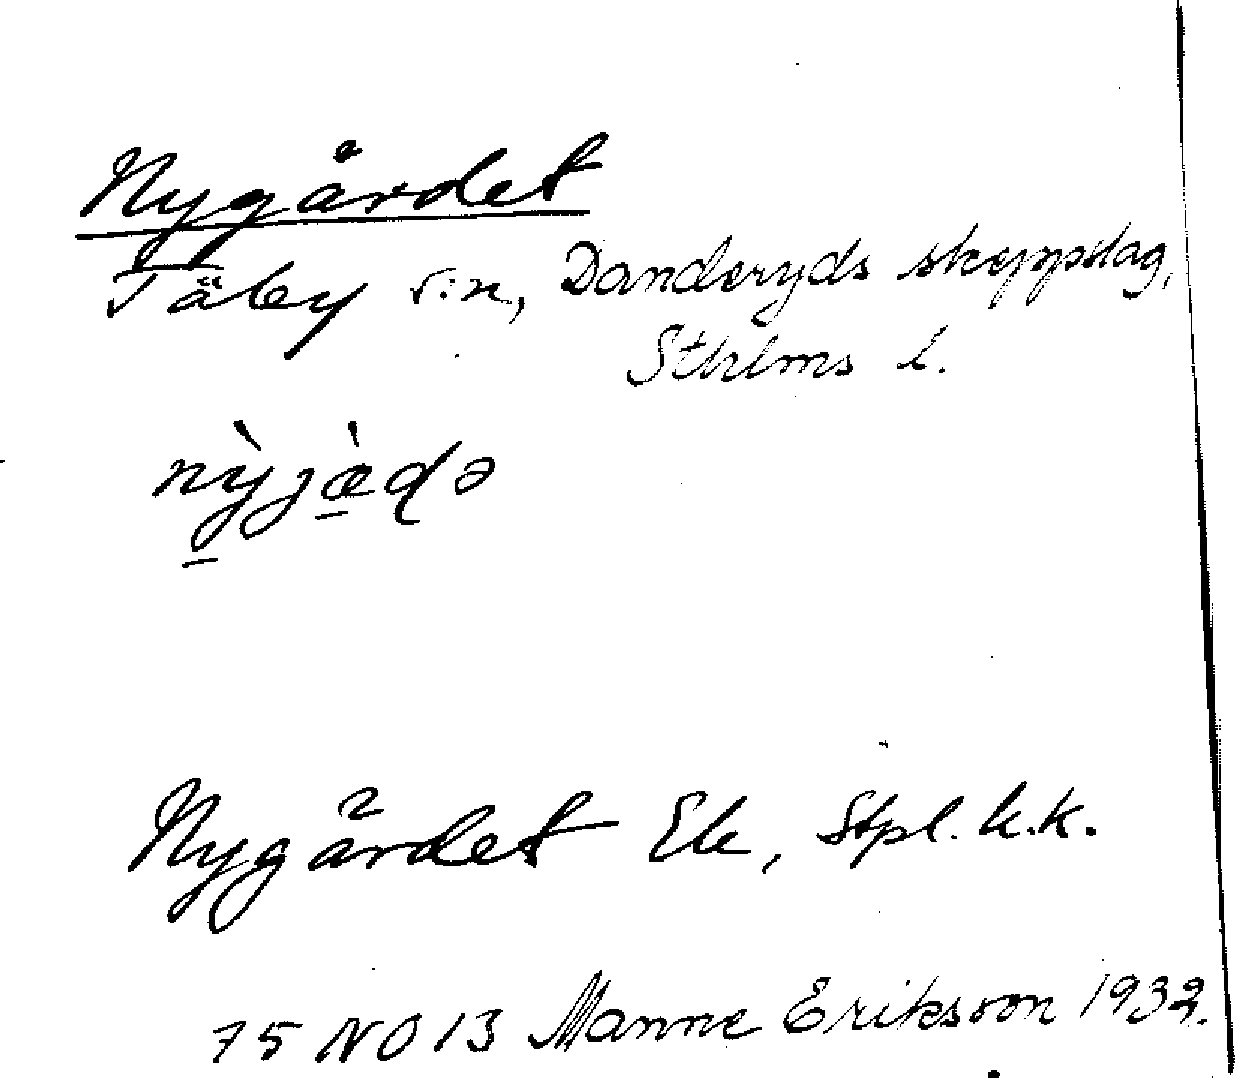 Nygärdet
Täby s:n, Danderyds skeppslag,
Sthlms l.
nỳjæ̀ɖə
Nygärdet Ek, Stpl. k.k.
75 NO 13 Manne Eriksson 1932.